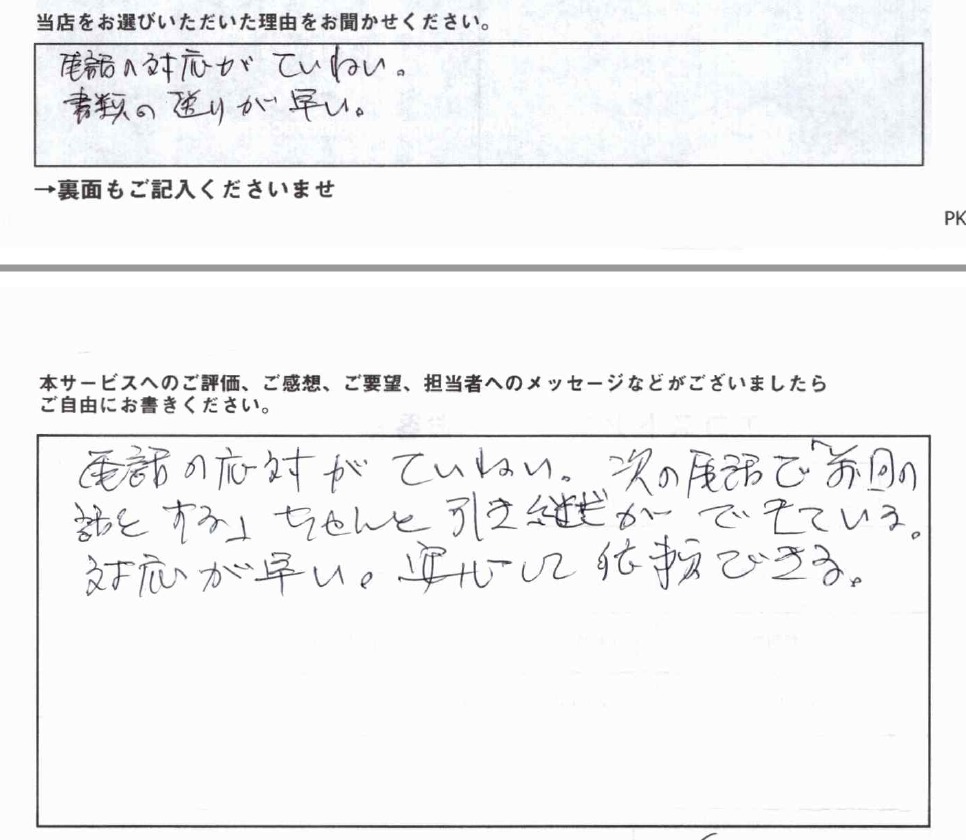 当店をお選びいただいた理由をお聞かせください。
電話の対応がていねい。
書類の送りが早い。
→裏面もご記入くださいませ
PK
本サービスへのご評価、ご感想、ご要望、担当者へのメッセージなどがございましたら
ご自由にお書きください。
電話の応対がていねい。次の電話で「前回の
話をする」ちゃんと引き継ぎがーできている。
対応が早い。安心して依頼できる。